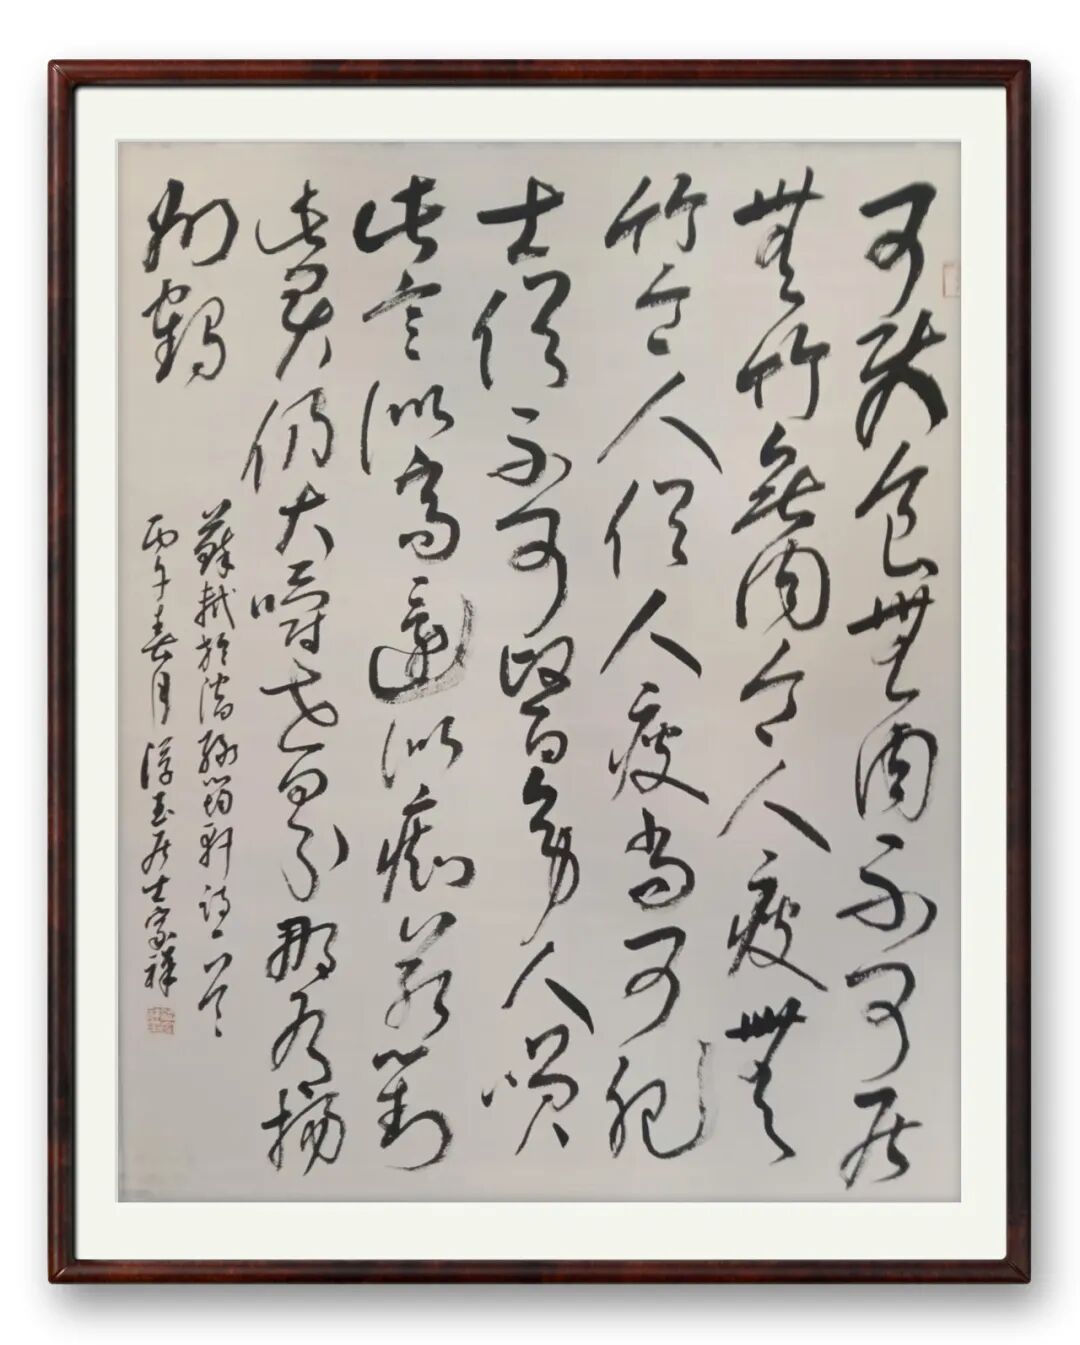 可使食無肉不可居
無竹無肉令人瘦無
竹令人俗人瘦尚可肥
士俗不可醫旁人笑
此言似高還似癡若對
此君仍大嚼世間那有揚
州鶴
蘇軾於潛綠筠軒詩一首
丙午春月淳玉居士家祥